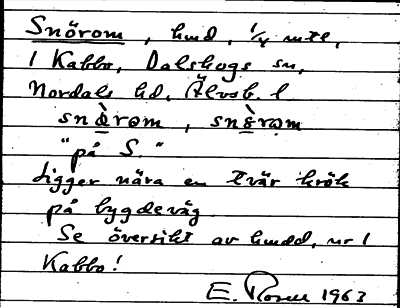 Snörom, hmd, 1/4 mtl,
1 Kabbo, Dalskogs sn,
Nordals hd, Älvsb. l
snœ̀rom, snɛ̀rom
"på S."
Ligger nära en tvär krök
på bygdeväg
Se översikt av hmdd, nr 1
Kabbo!
E. Rosen 1963